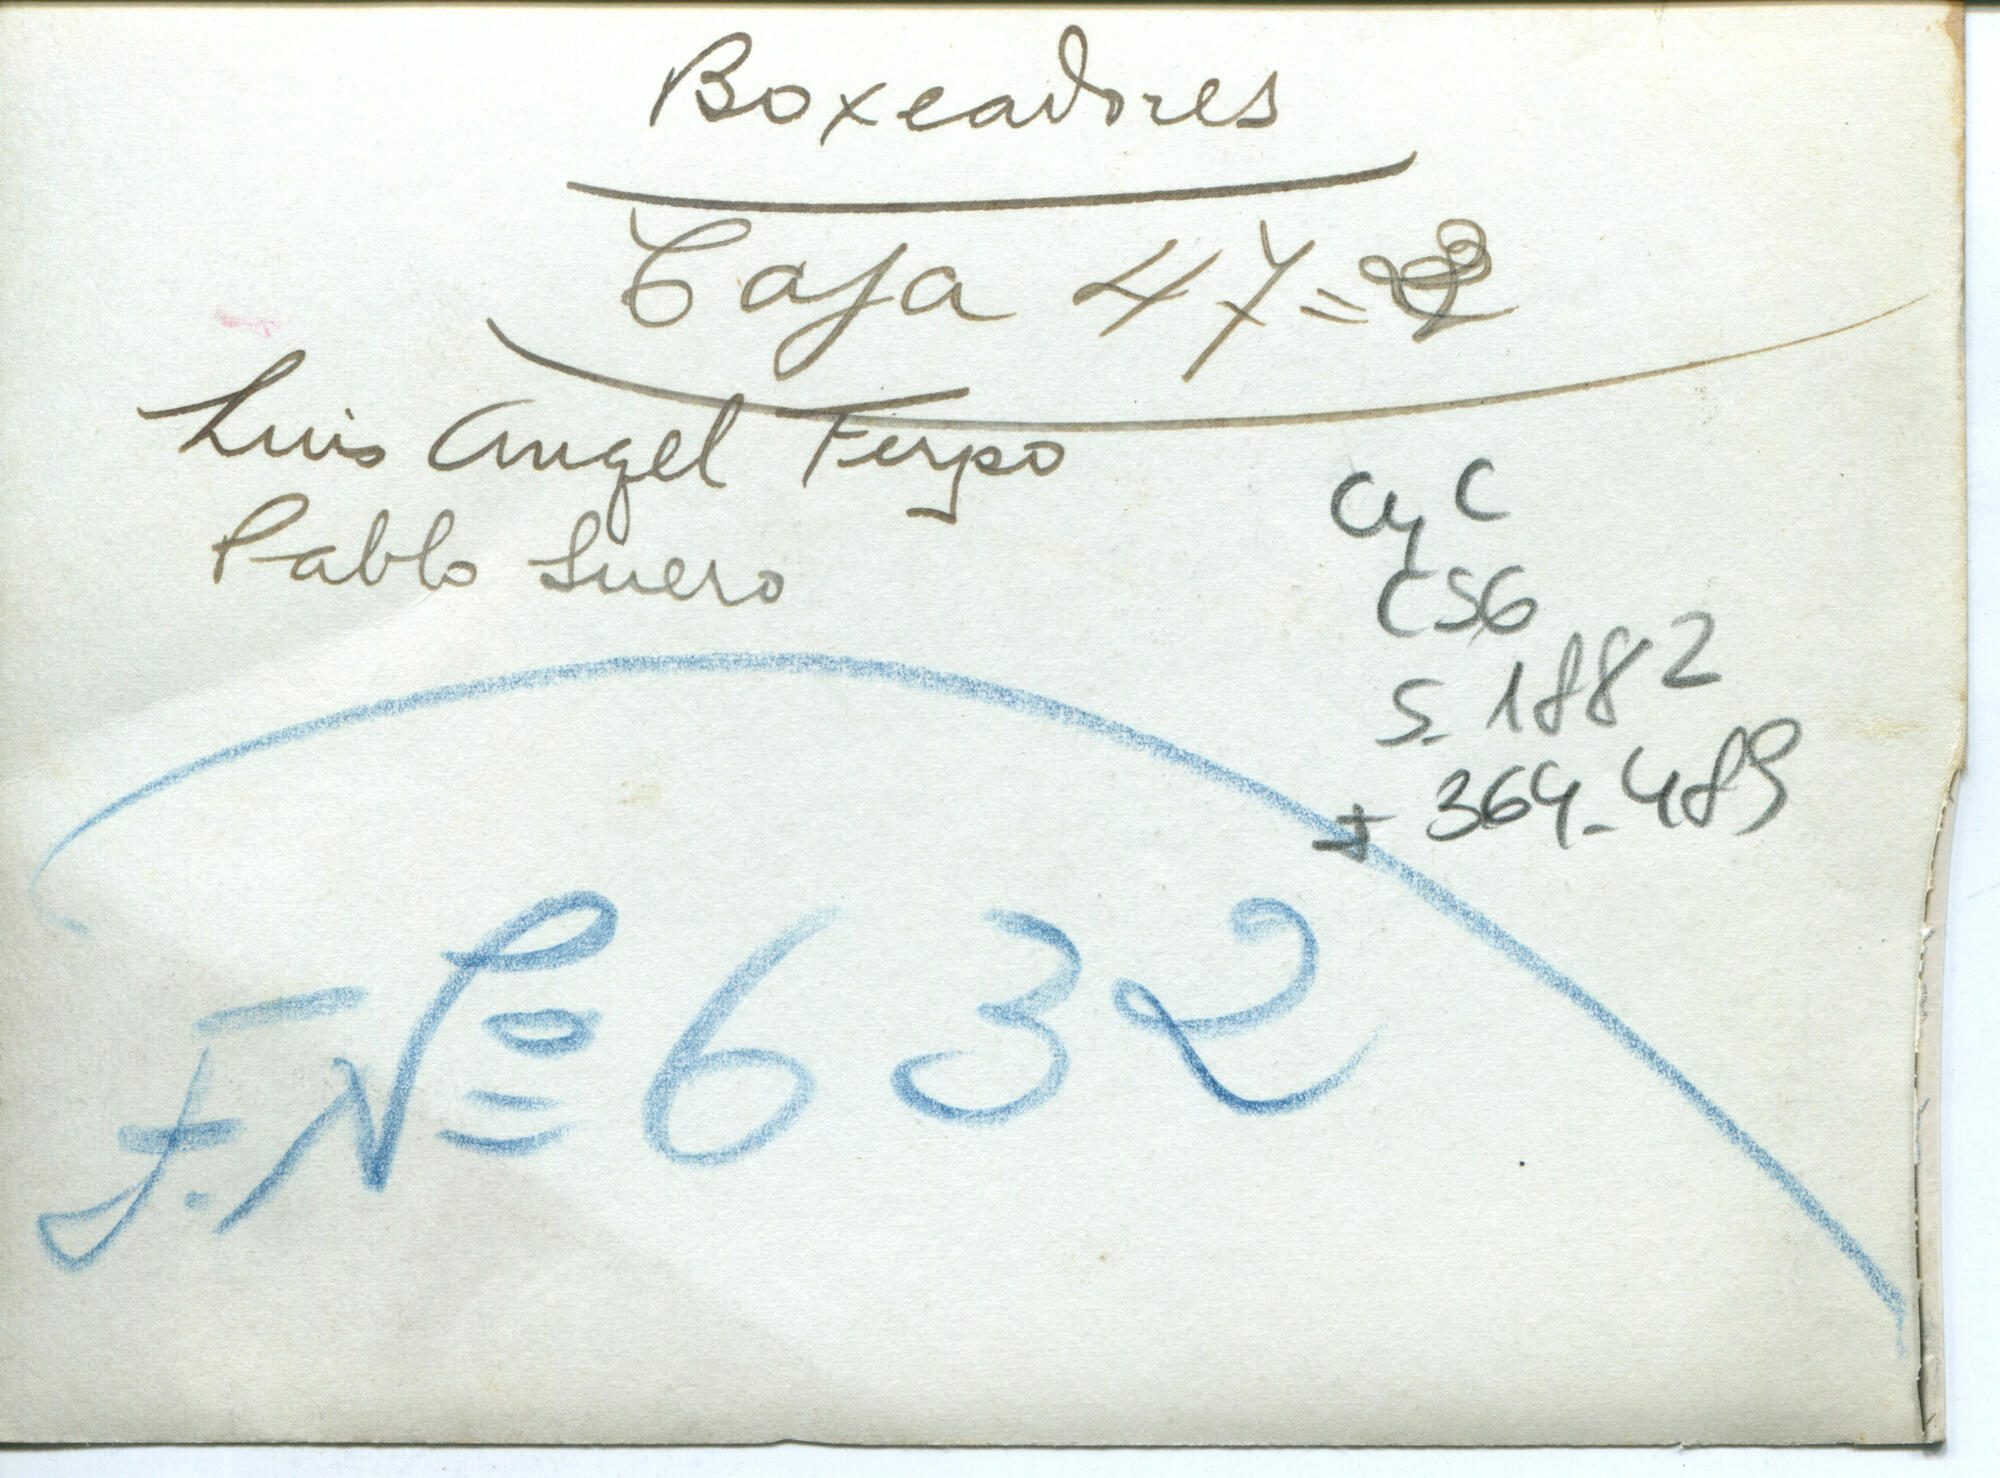 Boxeadores
Caja 47=
Luis Angel Ferpo
Pablo Suero
CyC
CS6
S. 1882
+ 364-489
F. Nº 632